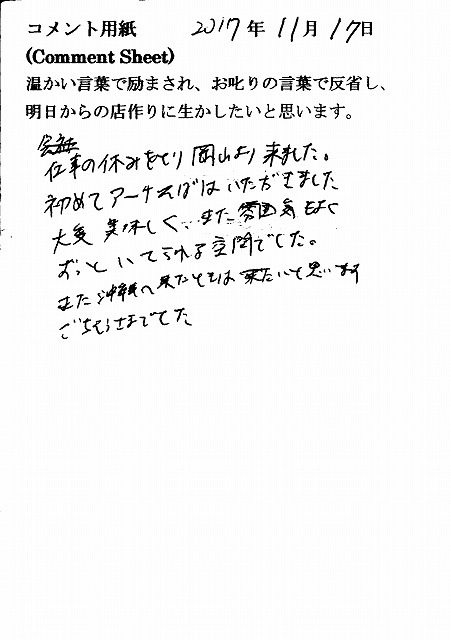 コメント用紙 2017年 11月 17日
(Comment Sheet)
温かい言葉で励まされ、お叱りの言葉で反省し、
明日からの店作りに生かしたいと思います。
会社
仕事の休みをとり 岡山より 来ました。
初めて アーサそばは いただきました
大変 美味しく、また 雰囲気もよく
ずっと いてられる 空間でした。
また 沖縄へ 来たときは 来たいと思います
ごちそうさまでした